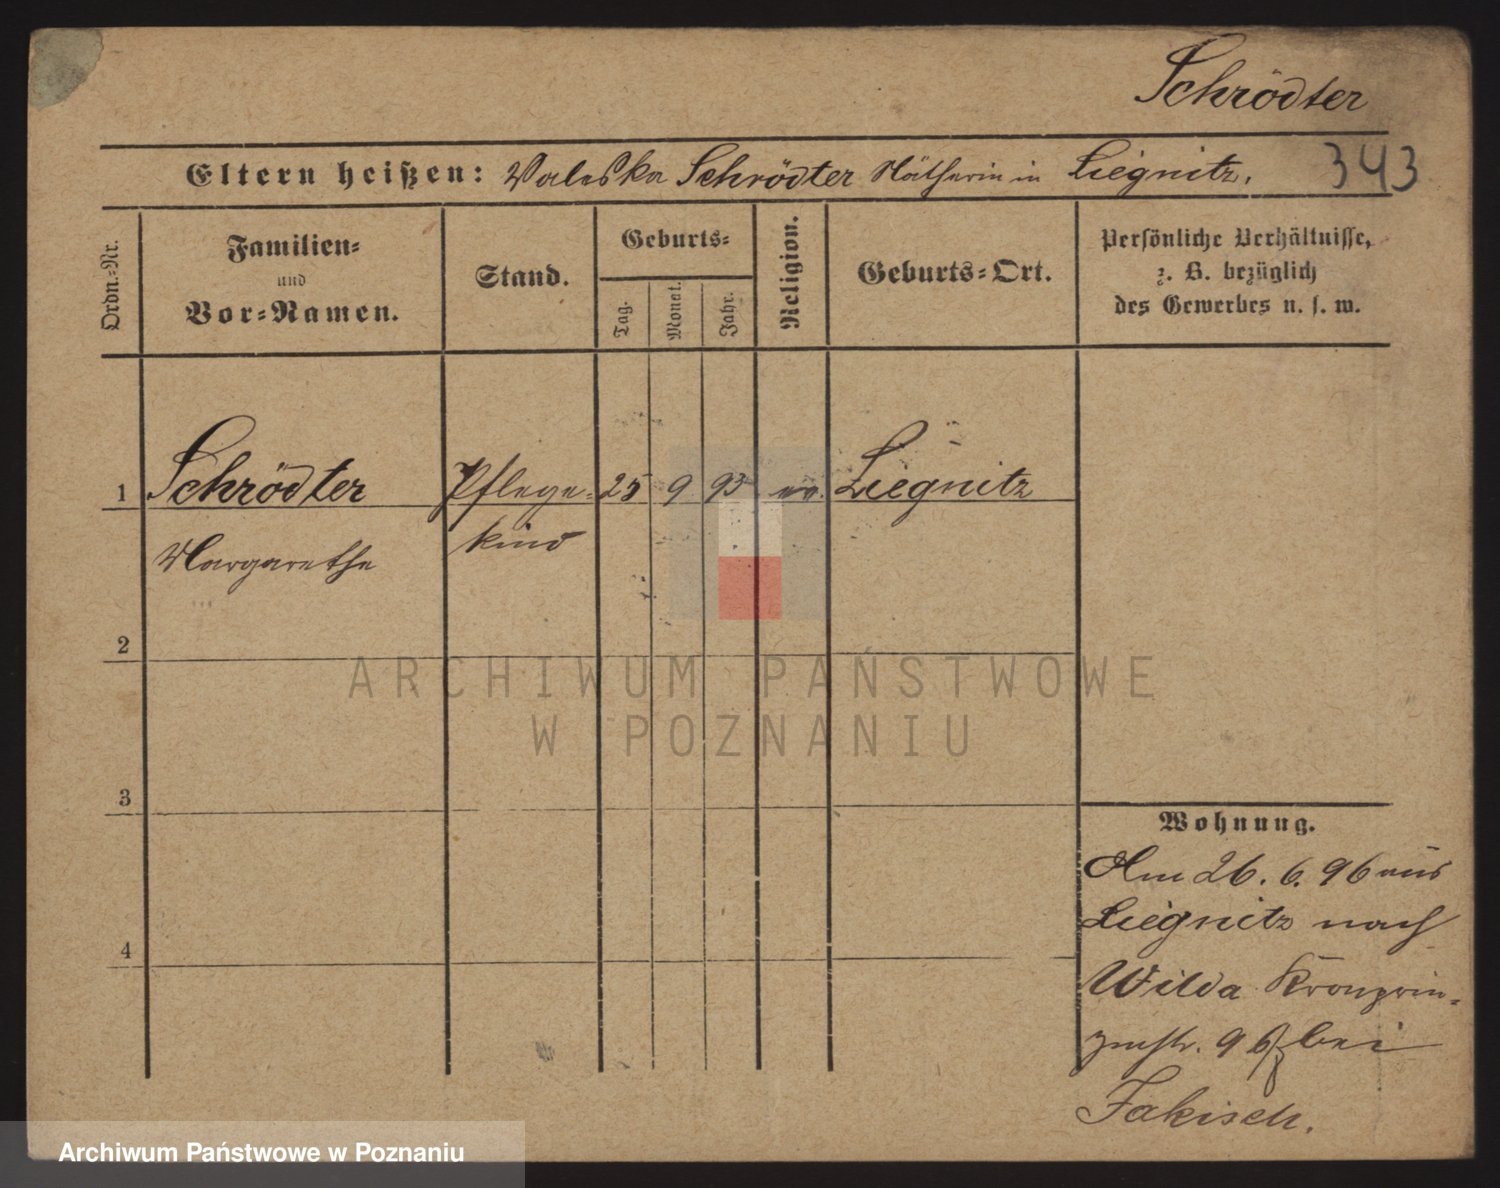 Schrödter
Eltern heißen: Valeska Schrödter Näherin in Liegnitz.
343
Ordn.-Nr.
Familien-
und
Vor-Namen.
Stand.
Geburts-
Tag.
Monat.
Jahr.
Religion.
Geburts-Ort.
Persönliche Verhältnisse,
z. B. bezüglich
des Gewerbes u. s. w.
1 Schrödter Pflege- 25 9 93 ev. Liegnitz
Margarethe kind
2
3
4
Wohnung.
Am 26. 6. 96 aus
Liegnitz nach
Wilda Kronprin-
zenstr. 96 bei
Fakisch.
ARCHIWUM PAŃSTWOWE
W POZNANIU
Archiwum Państwowe w Poznaniu